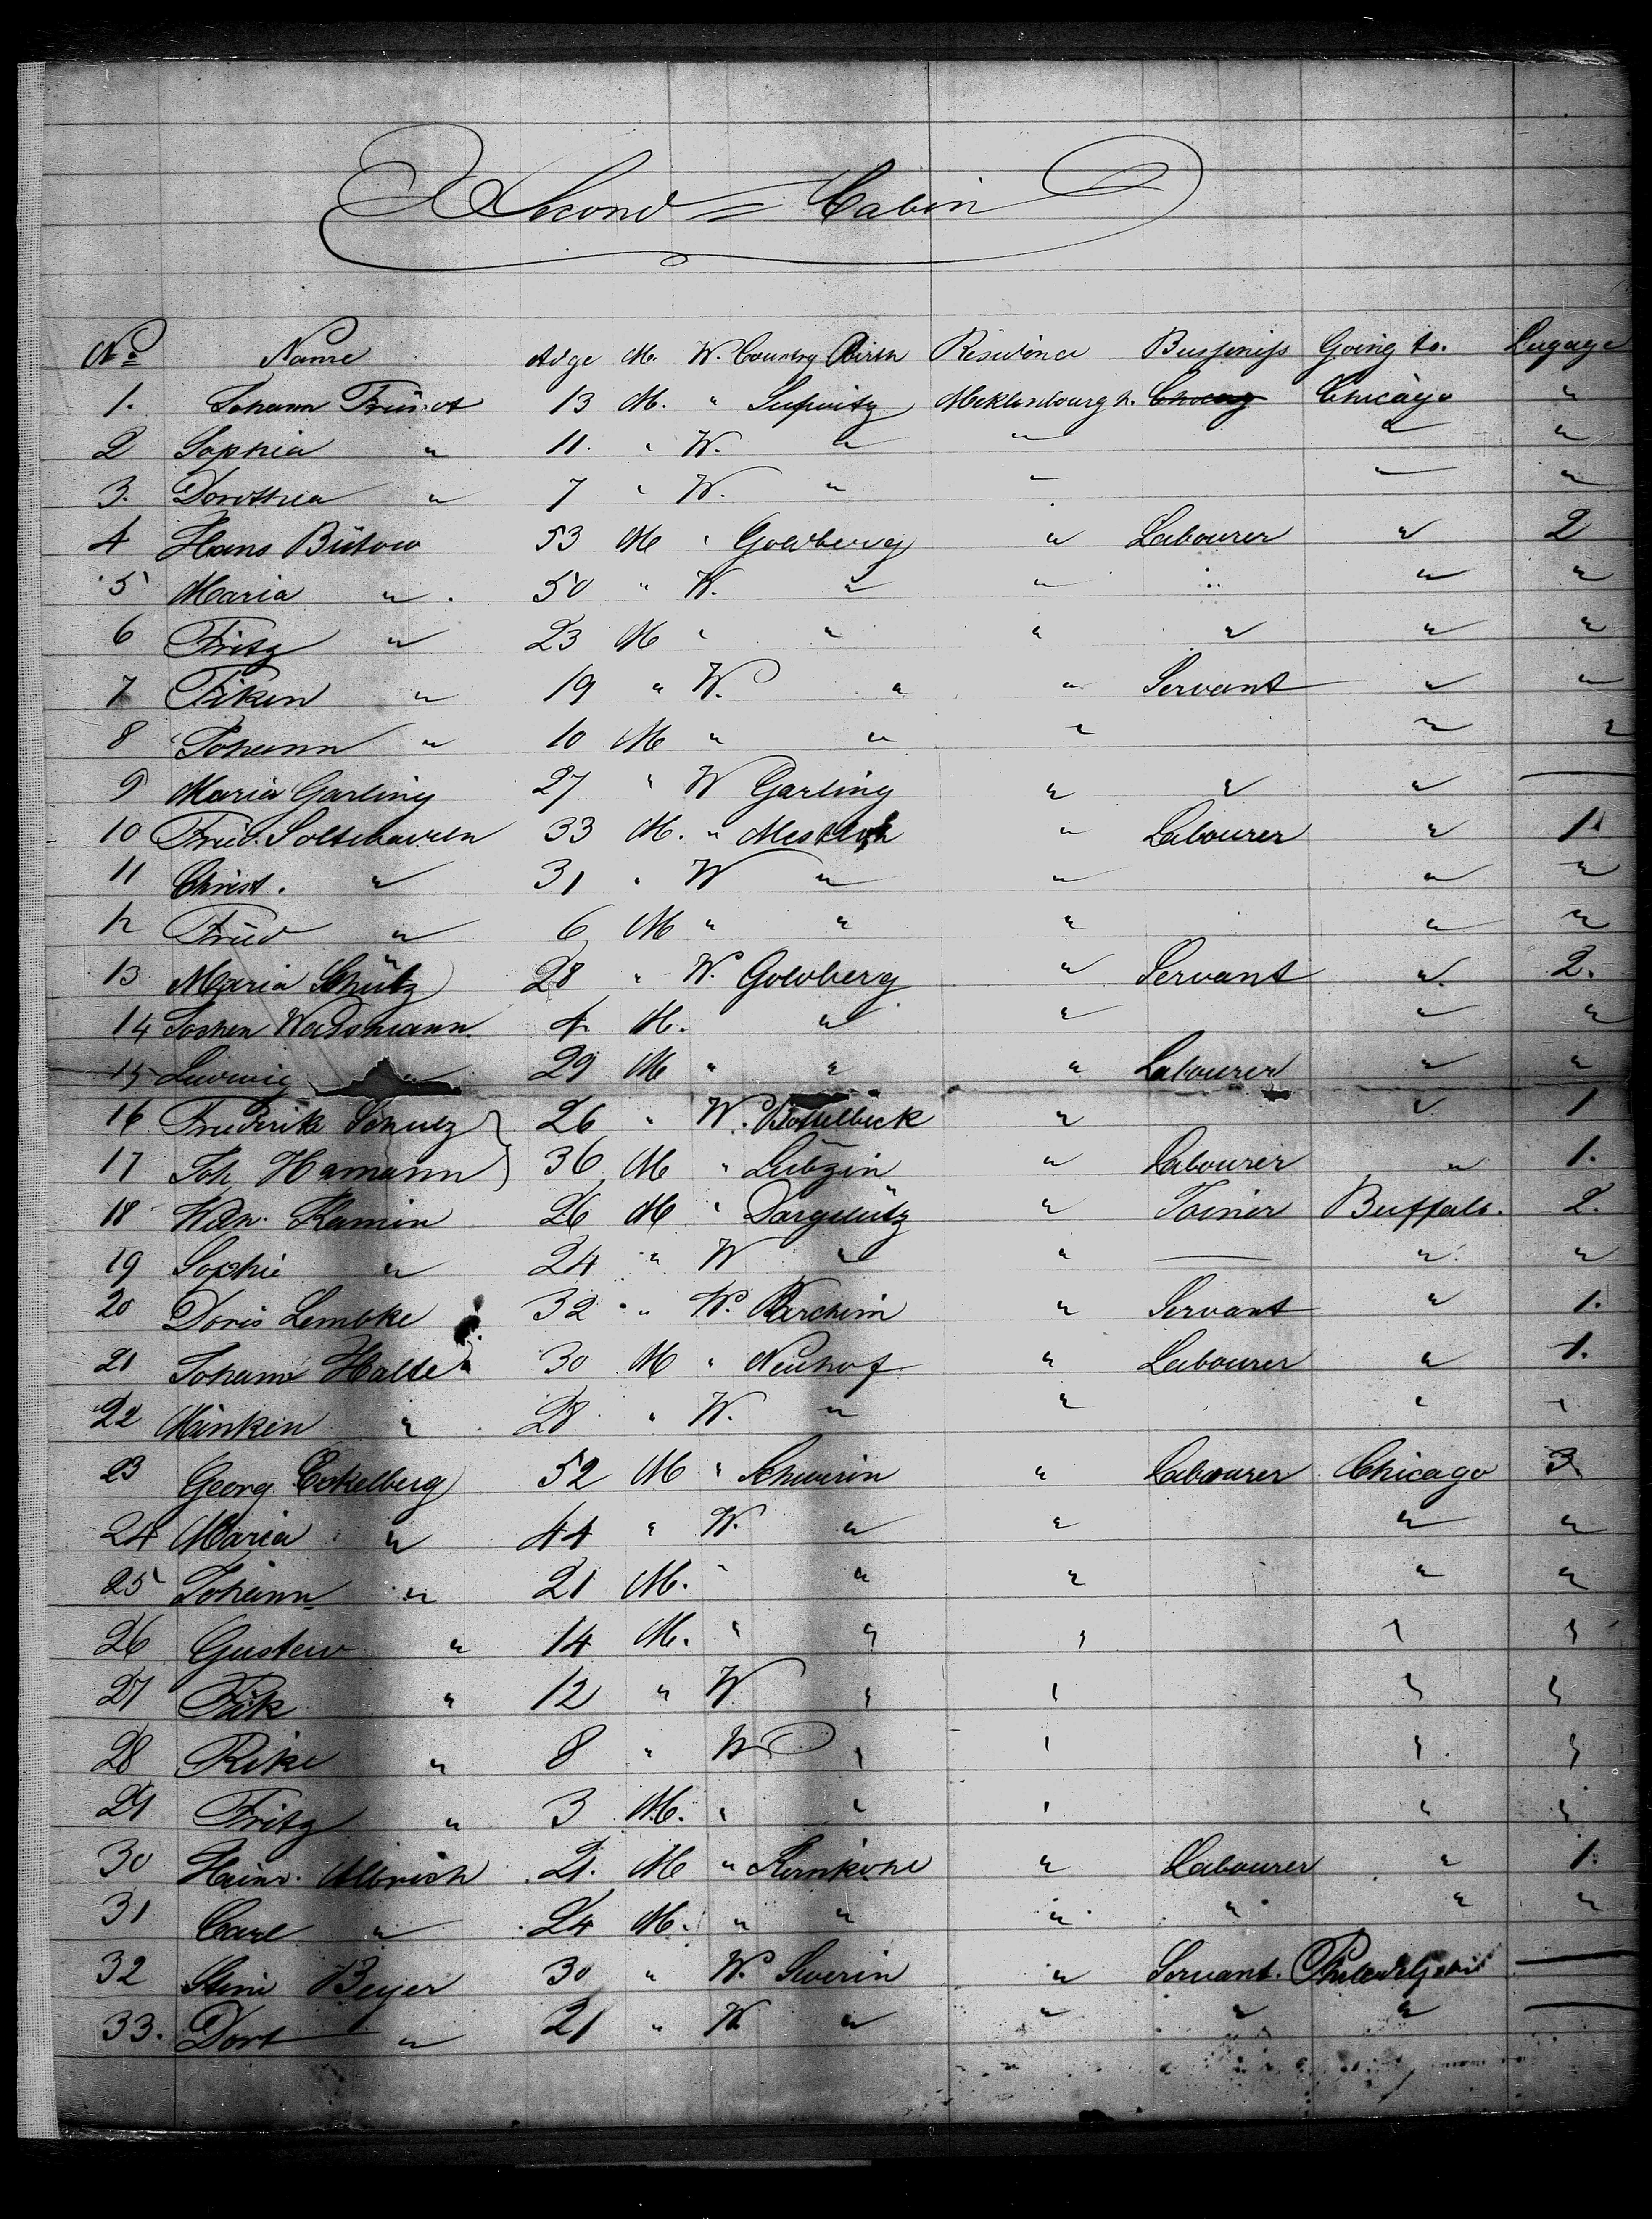 Second = Cabin
No. Name Age M. W. Country Birth Residence Bussiniss Going to. Lugage
1. Johann Fründt 13 M. " Mecklenbourg h. Chicago "
2 Sophia " 11. " W. " " " "
3. Dorothea " 7 " W. " " " "
4 Hans Bütow 53 M " Goldberg " Labourer " 2
5 Maria " 50 " W. " " " " "
6 Fritz " 23 M " " " " " "
7 Fiken " 19 " W. " " Servant " "
8 Johann " 10 M " " " " "
9 Maria Garling 27 " W Garling " " " —
10 Fried. 33 M. " Mestlin " Labourer " 1.
11 Christ. " 31 " W " " " "
12 Fried " 6 M " " " " "
13 Maria Schütz 28 " W. Goldberg " Servant " 2.
14 Jochen Wassmann 4 M. " " " "
15 Ludwig " 29 M " " " Labourer " "
16 Friederike Schulz 26 " W. " " 1
17 Joh. Hamann 36 M " Lübzin " Labourer " 1.
18 Wilh. Kamin 26 M " Dargelütz " Joiner Buffalo. 2.
19 Sophie " 24 " W " " — " "
20 Doris Lembke 32 " W. Parchim " Servant " 1.
21 Johann Halte 30 M " Neuhof " Labourer " 1.
22 Minken " 28 " W. " " " "
23 Georg Eckelberg 52 M " Schwerin " Labourer Chicago 3
24 Maria " 44 " W. " " " "
25 Johann " 21 M. " " " " "
26 Gustav " 14 M. " " " " "
27 Fik " 12 " W " " " "
28 Rike " 8 " W " " " "
29 Fritz " 3 M. " " " " "
30 Heinr. Albrech 21. M " " Labourer " 1.
31 Carl " 24 M. " " " " " "
32 Stine Beyer 30 " W. Swerin " Servant. Philadelphia —
33. Dort " 21 " W " " " " —